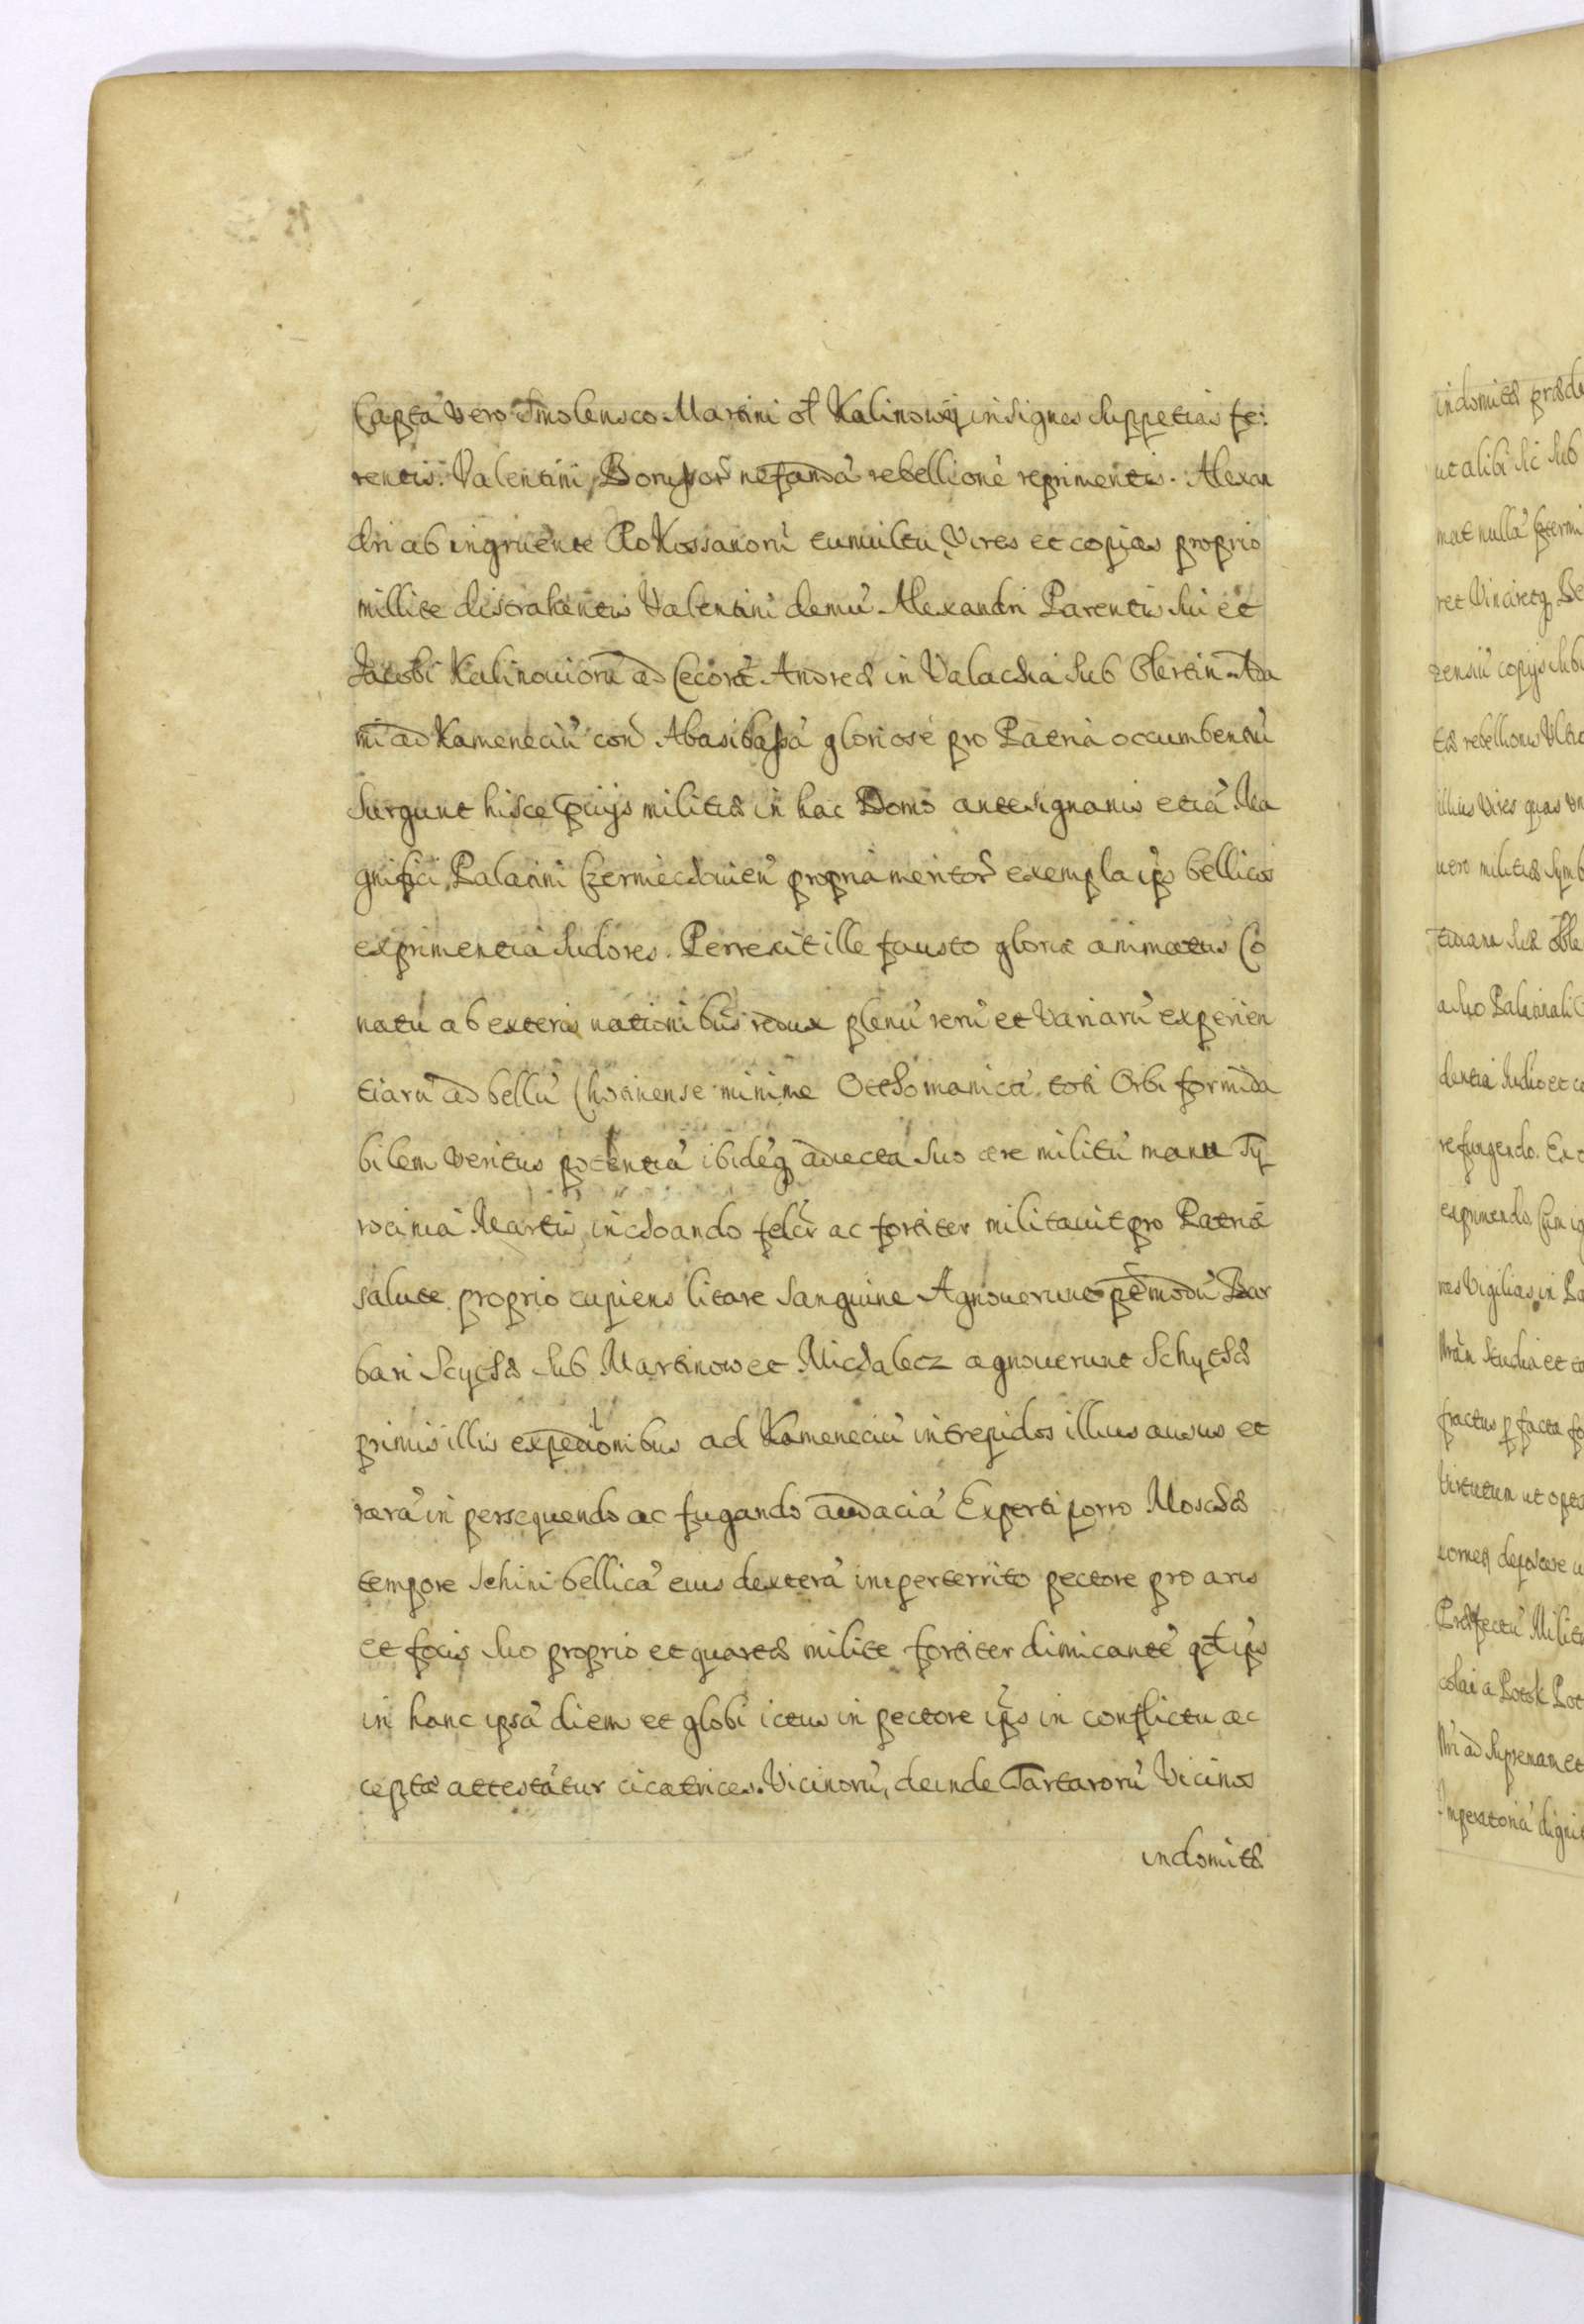 Captā vero Smolensco Martini ol Kalinowÿ insignes suppetias fe:
rentis. Valentini, Borussorū nefandā rebellionē reprimentis. Alexan
dri ab ingruente Rokossanorū tumultu, Vires et copias proprio
millite distrahentis Valentini demū Alexandri Parentis sui et
Jacobi Kalinouiorū ad Cecorā. Andreæ in Valachia sub Obertin Ada
mi ad Kameneciū con Abasibassā gloriosè pro Patria occumbentū
surgunt hisce militiæ in hac Domo antesignanis etiā Ma
gnifici Palatini Czerniechouien propria meritorū exempla ips bellicos
exprimentia sudores. Perrexit ille fausto gloriæ animatus Co
natu ab exteris nationibus redux plenū rerū et Variarū experien
tiarū ad bellū Chotinense minime Otthomanicā toti Orbi formida
bilem veritus potentiā ibidēq adiecta suo ære militū manu Ty
rocinia Martis inchoando felcr ac fortiter militauit pro Patriæ
salute proprio cupiens litare sanguine Agnouerunt pemodū Bar
bari Scythæ sub Martinow et Michalecz agnouerunt Schythæ
primis illis expedionibus ad Kameneciū intrepidos illius ausus et
rarā in persequendo ac fugando audaciā Experti porro Moschæ
tempore Sehini bellicā eius dexterā imperterrito pectore pro aris
et focis suo proprio et quartæ milite fortiter dimicantē qd ips
in hanc ipsā diem et globi ictus in pectore ips in conflictu ac
ceptæ attestātur cicatrices. Vicinorū, deinde Tartarorū Vicinos
indomitæ